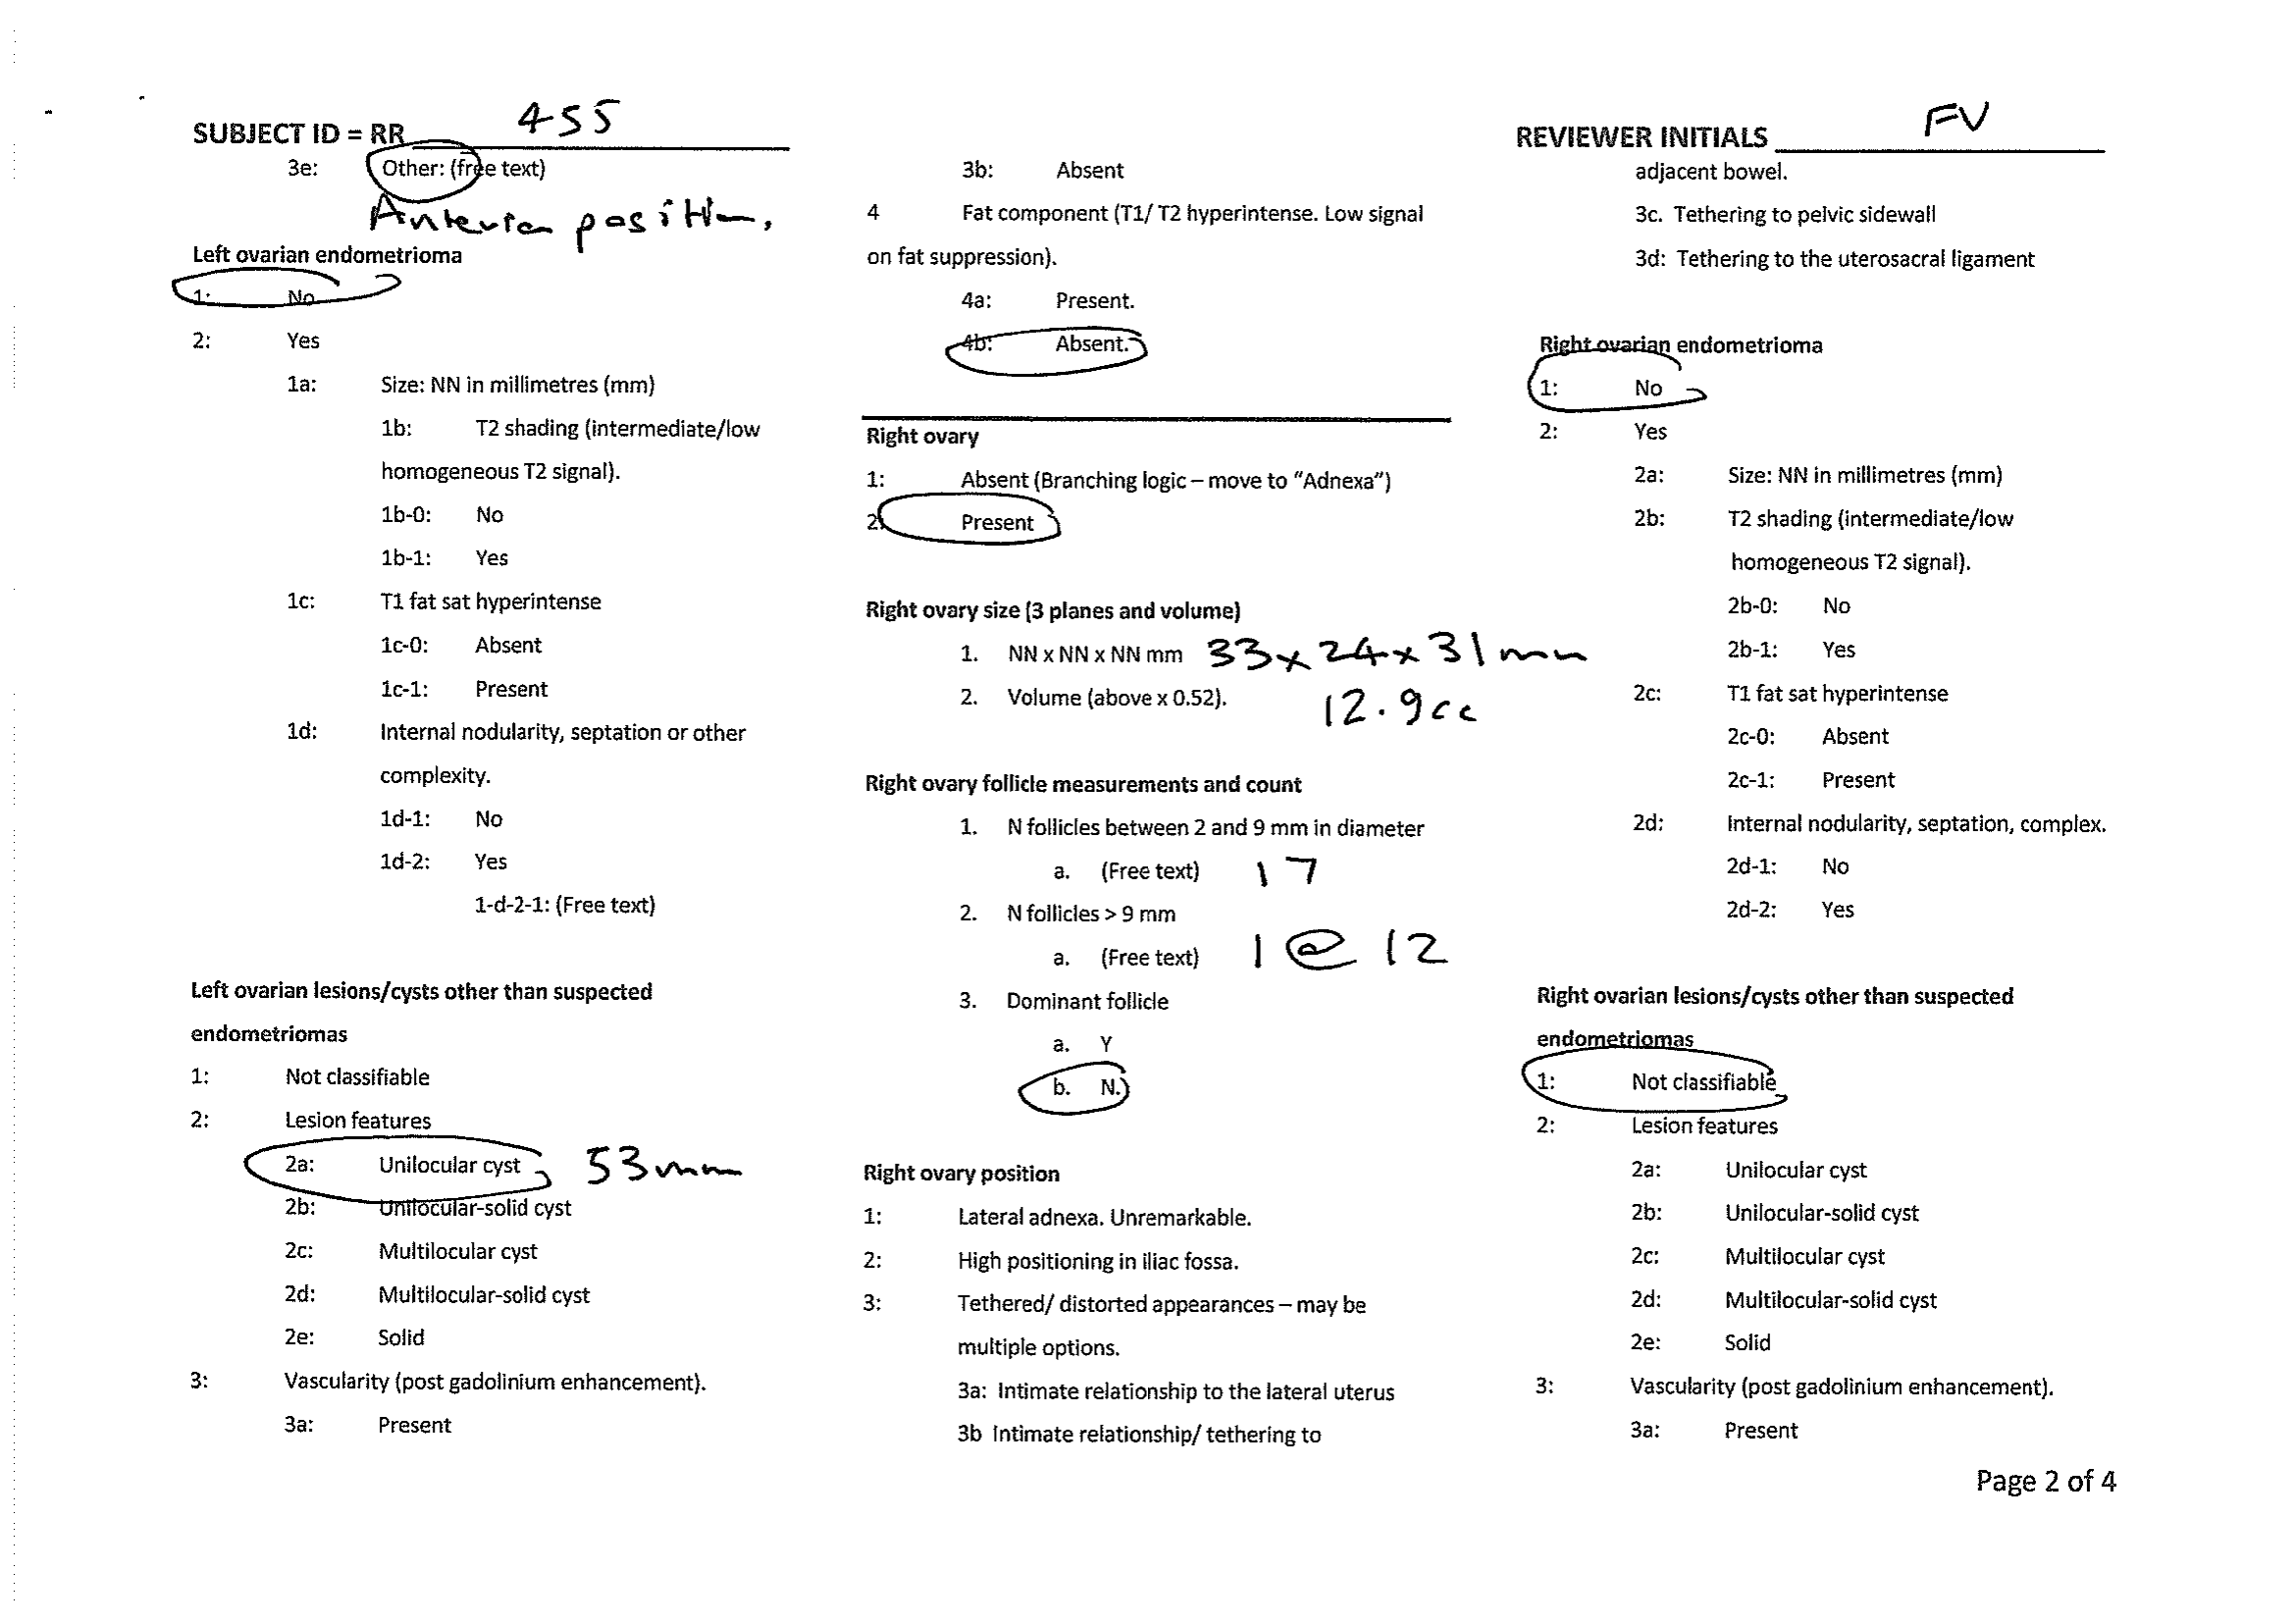 SUBJECT ID = RR 455
3e: Other: (free text)
Anterior position.
Left ovarian endometrioma
1: No
2: Yes
1a: Size: NN in millimetres (mm)
1b: T2 shading (intermediate/low
homogeneous T2 signal).
1b-0: No
1b-1: Yes
1c: T1 fat sat hyperintense
1c-0: Absent
1c-1: Present
1d: Internal nodularity, septation or other
complexity.
1d-1: No
1d-2: Yes
1-d-2-1: (Free text)
Left ovarian lesions/cysts other than suspected
endometriomas
1: Not classifiable
2: Lesion features
2a: Unilocular cyst 53mm
2b: Unilocular-solid cyst
2c: Multilocular cyst
2d: Multilocular-solid cyst
2e: Solid
3: Vascularity (post gadolinium enhancement).
3a: Present
3b: Absent
4 Fat component (T1/ T2 hyperintense. Low signal
on fat suppression).
4a: Present.
4b: Absent.
Right ovary
1: Absent (Branching logic – move to “Adnexa”)
2: Present
Right ovary size (3 planes and volume)
1. NN x NN x NN mm 33x24x31mm
2. Volume (above x 0.52). 12.9cc
Right ovary follicle measurements and count
1. N follicles between 2 and 9 mm in diameter
a. (Free text) 17
2. N follicles > 9 mm
a. (Free text) 1 @ 12
3. Dominant follicle
a. Y
b. N.
Right ovary position
1: Lateral adnexa. Unremarkable.
2: High positioning in iliac fossa.
3: Tethered/ distorted appearances – may be
multiple options.
3a: Intimate relationship to the lateral uterus
3b Intimate relationship/ tethering to
REVIEWER INITIALS FV
adjacent bowel.
3c. Tethering to pelvic sidewall
3d: Tethering to the uterosacral ligament
Right ovarian endometrioma
1: No
2: Yes
2a: Size: NN in millimetres (mm)
2b: T2 shading (intermediate/low
homogeneous T2 signal).
2b-0: No
2b-1: Yes
2c: T1 fat sat hyperintense
2c-0: Absent
2c-1: Present
2d: Internal nodularity, septation, complex.
2d-1: No
2d-2: Yes
Right ovarian lesions/cysts other than suspected
endometriomas
1: Not classifiable
2: Lesion features
2a: Unilocular cyst
2b: Unilocular-solid cyst
2c: Multilocular cyst
2d: Multilocular-solid cyst
2e: Solid
3: Vascularity (post gadolinium enhancement).
3a: Present
Page 2 of 4